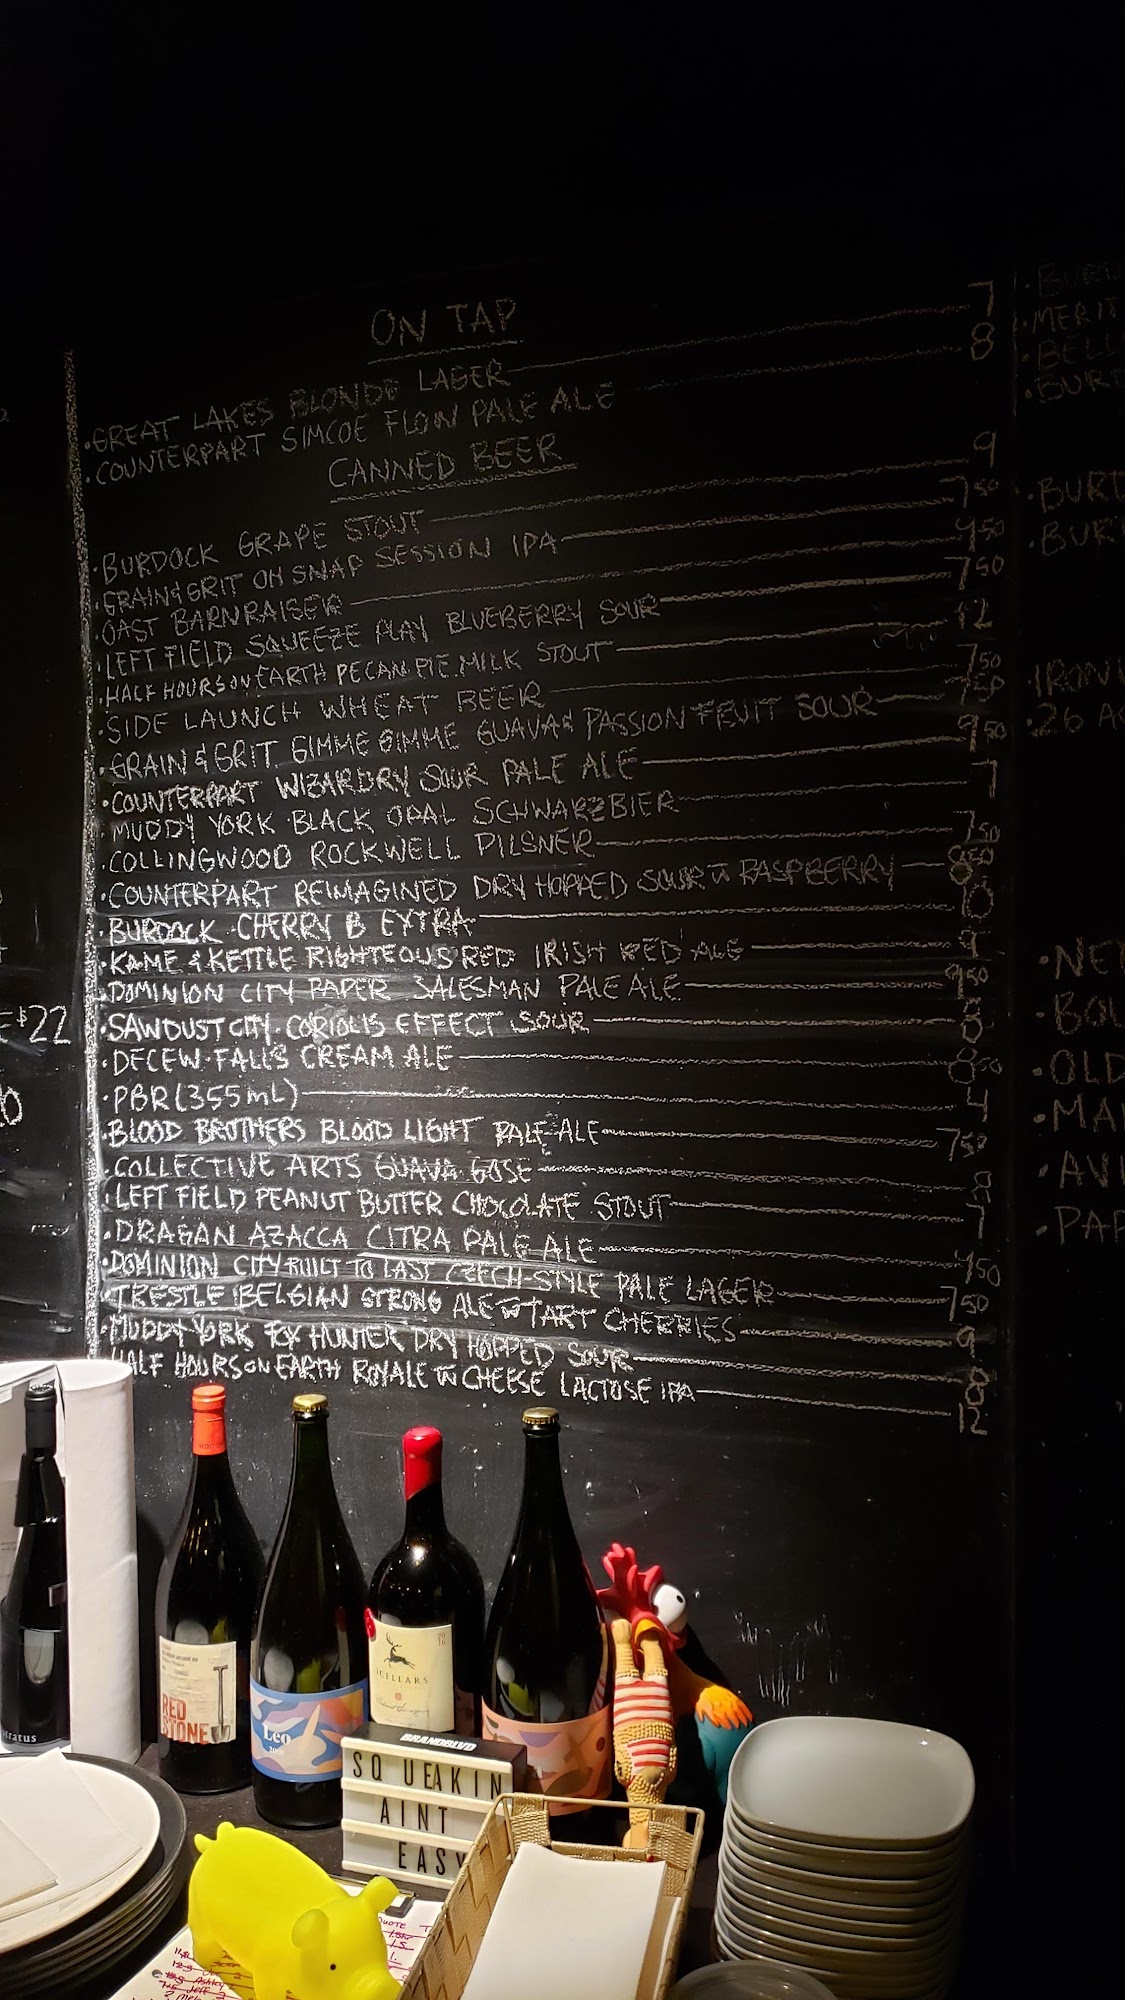 ON TAP
· GREAT LAKES BLONDE LAGER 7
· COUNTERPART SIMCOE FLOW PALE ALE 8
CANNED BEER
· BURDOCK GRAPE STOUT 9
· GRAIN & GRIT OH SNAP SESSION IPA 750
· OAST BARNRAISER 950
· LEFT FIELD SQUEEZE PLAY BLUEBERRY SOUR 750
· HALF HOURS ON EARTH PECAN PIE MILK STOUT 12
· SIDE LAUNCH WHEAT BEER 750
· GRAIN & GRIT GIMME GIMME GUAVA & PASSIONFRUIT SOUR 750
· COUNTERPART WIZARDRY SOUR PALE ALE 950
· MUDDY YORK BLACK OPAL SCHWARZBIER
· COLLINGWOOD ROCKWELL PILSNER 750
· COUNTERPART REIMAGINED DRY HOPPED SOUR W RASPBERRY
· BURDOCK CHERRY B EXTRA
· KAME & KETTLE RIGHTEOUS RED IRISH RED ALE 9
· DOMINION CITY PAPER SALESMAN PALE ALE 950
· SAWDUST CITY · CORIOLIS EFFECT SOUR 8
· DECEW FALLS CREAM ALE 850
· PBR (355mL) 4
· BLOOD BROTHERS BLOOD LIGHT PALE ALE 750
· COLLECTIVE ARTS GUAVA GOSE
· LEFT FIELD PEANUT BUTTER CHOCOLATE STOUT 7
· DRAGAN AZACCA CITRA PALE ALE
· DOMINION CITY BUILT TO LAST CZECH-STYLE PALE LAGER 750
· TRESTLE BELGIAN STRONG ALE W TART CHERRIES 9
· MUDDY YORK FOX HUNTER DRY HOPPED SOUR 8
HALF HOURS ON EARTH ROYALE W CHEESE LACTOSE IPA 12
$22
· MERIT
· BELL
· BURD
· BURD
· IRON
· 26 AC
· NE
· BOU
· OLD
· MA
· AVI
· PAP
RED
STONE
Leo
ICELLARS
Cabernet Sauvignon
stratus
BRANDBLVD
SQUEAKIN
AINT
EASY